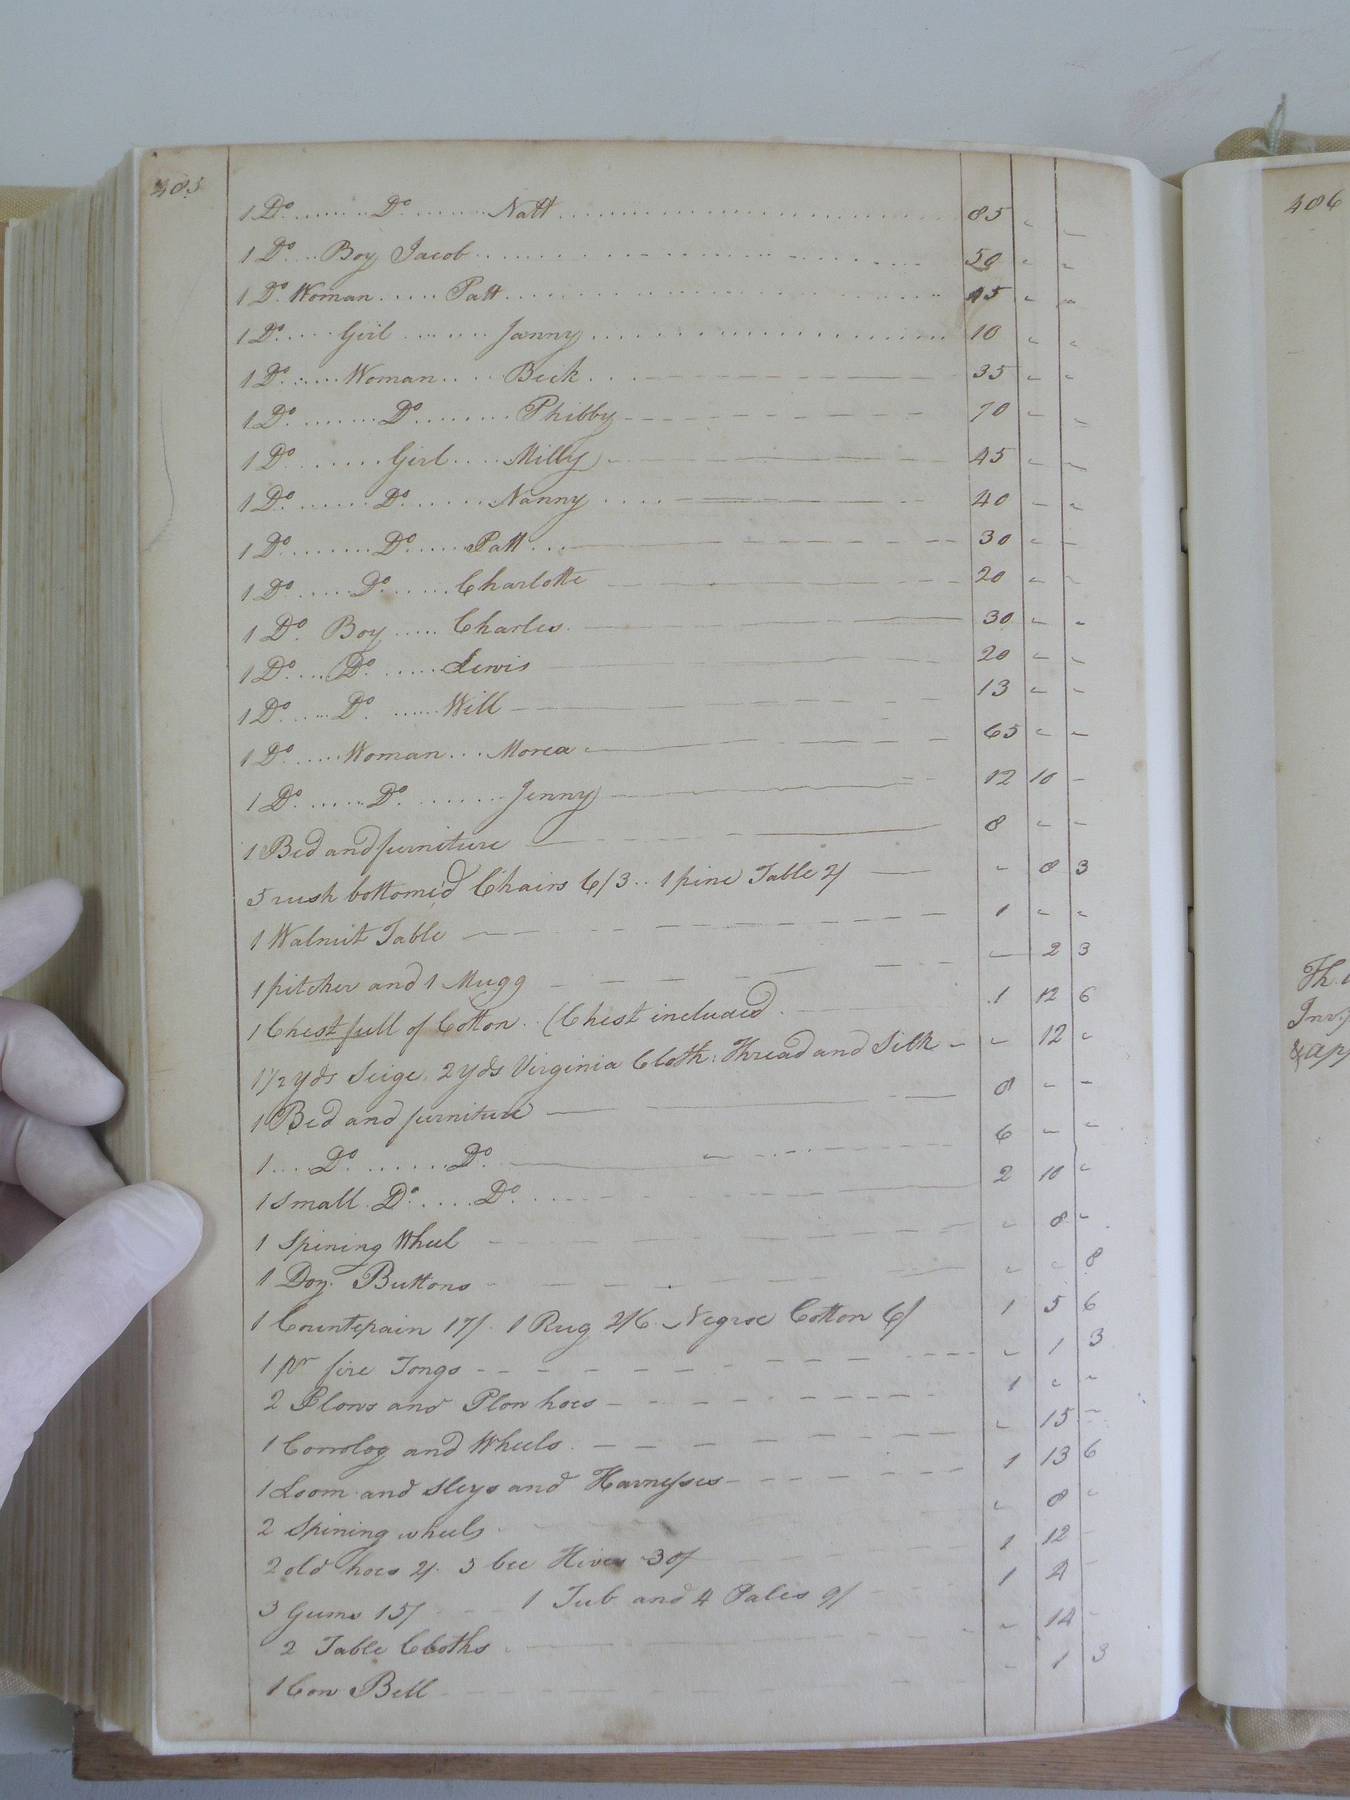 485
1 Do. ........ Do. ....... Natt ........ 85 - -
1 Do. .. Boy Jacob ........ 50 - -
1 Do. Woman ..... Patt ........ 45 - -
1 Do. .... Girl ....... Janny ........ 10 - -
1 Do. ..... Woman .... Beck ... - - - 35 - -
1 Do. ....... Do. ....... Phibby - - - 70 - -
1 Do. ...... Girl .... Milly - - - 45 - -
1 Do. ...... Do. ...... Nanny .... - - - 40 - -
1 Do. ....... Do. ..... Patt ... - - - 30 - -
1 Do. ..... Do. ...... Charlotte - - - 20 - -
1 Do. Boy ..... Charles. - - - 30 - -
1 Do. ... Do. ..... Lewis - - - 20 - -
1 Do. ..... Do. ..... Will - - - 13 - -
1 Do. ..... Woman ... Morea - - - 65 - -
1 Do. ...... Do. ....... Jenny - - - 12 10 -
1 Bed and furniture - - - 8 - -
5 rush bottomed Chairs 6/3 .. 1 pine Table 2/ - - 8 3
1 Walnut Table - - - 1 - -
1 pitcher and 1 Mugg - - - - 2 3
1 Chest full of Cotton .. (Chest included . - - 1 12 6
1 1/2 yds Seige, 2 yds Virginia Cloth: Thread and Silk - - 12 -
1 Bed and furniture - - - 8 - -
1 .... Do. ...... Do. - - - 6 - -
1 Small Do. .... Do. ... - - - 2 10 -
1 Spining Wheel - - - - 8 -
1 Doz. Buttons - - - - - 8
1 Countepain 17/. 1 Rug 2/6. Negroe Cotton 6/ 1 5 6
1 pr fire Tongs - - - - 1 3
2 Plows and Plow hoes - - - 1 - -
1 Corrolog and Wheels. - - - - 15 -
1 Loom and Sleys and Harnesses - - - 1 13 6
2 Spining wheels - - - - 8 -
2 old hoes 2/. 5 bee Hives 30/ - - 1 12 -
3 Gums 15/ - - 1 Tub and 4 Pales 9/ - - 1 4 -
2 Table Cloths - - - - 14 -
1 Cow Bell - - - - 1 3
406
Th
Inv
& app